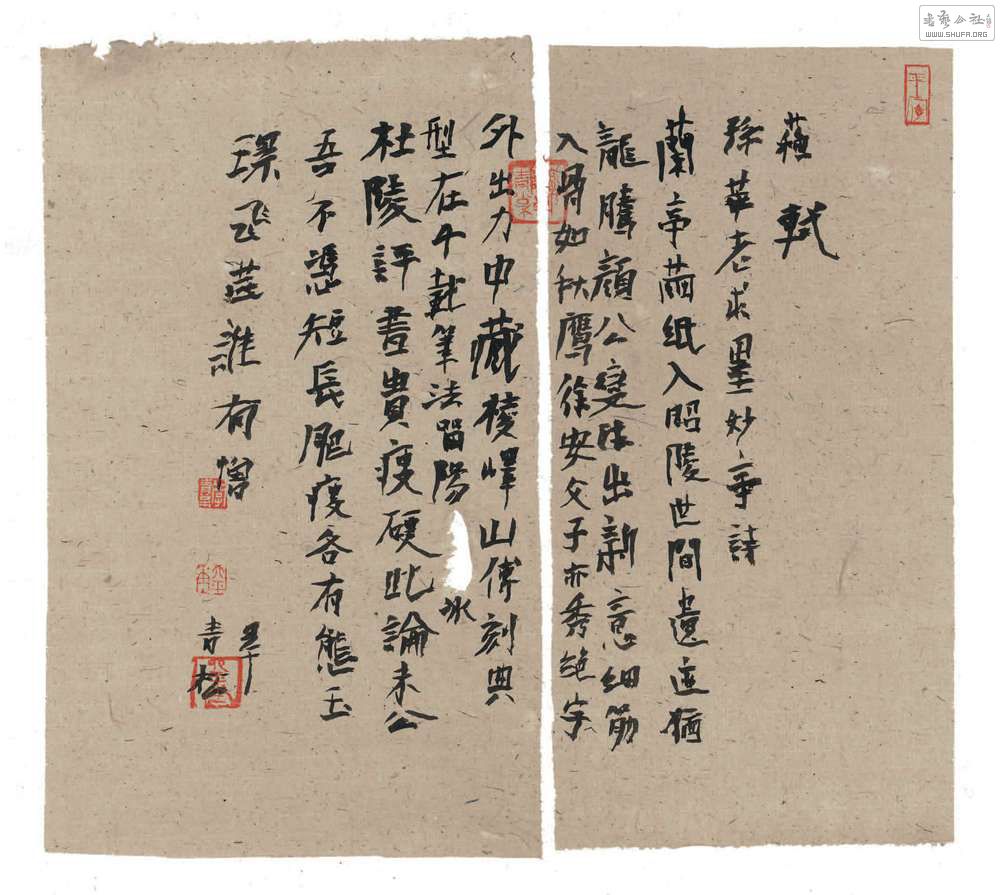 書藝公社
WWW.SHUFA.ORG
蘇軾
孫莘老求墨妙亭詩
蘭亭繭紙入昭陵世間遺迹猶
龍騰顏公變法出新意細筋
入骨如秋鷹徐安父子亦秀絕字
外出力中藏棱嶧山傳刻典
型在千載筆法留陽冰
杜陵評書貴瘦硬此論未公
吾不憑短長肥瘦各有態玉
環飛燕誰有憎
青松